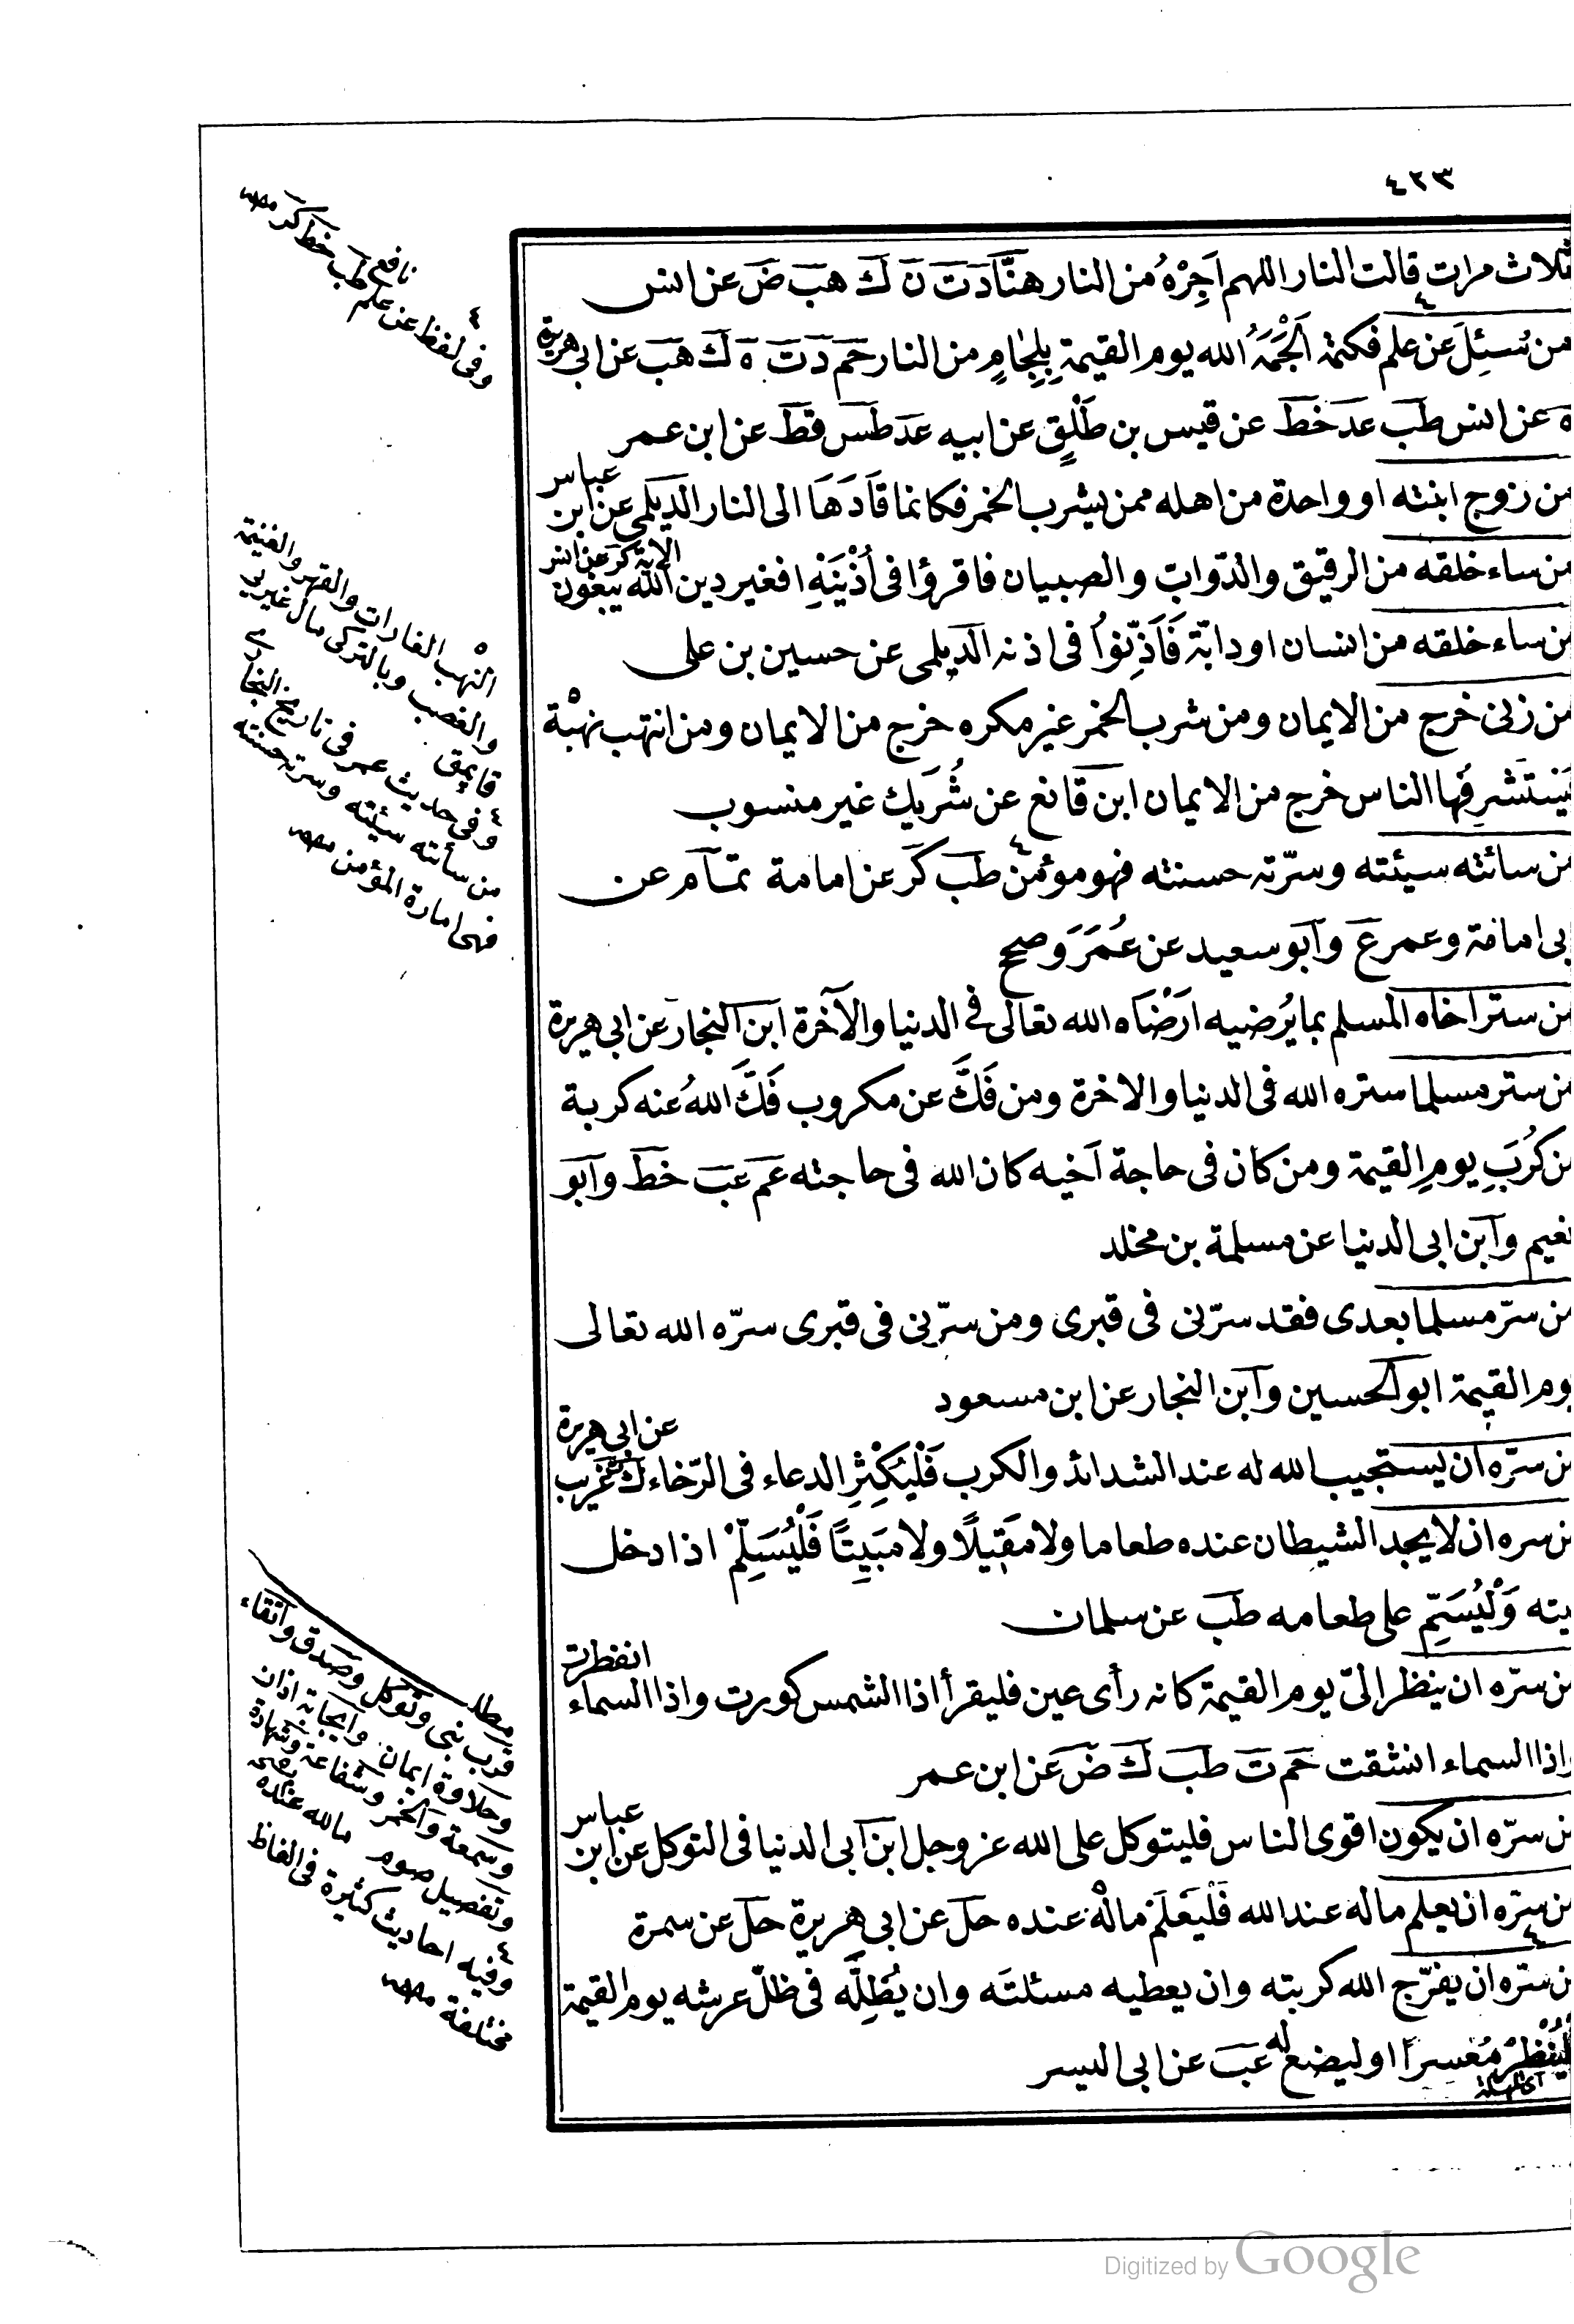 ٤٢٣
ثلاث مرات قالت النار اللهم اَجِرْهُ من النار هنَّاد ت ن ك هب ض عن انس
من سُئِلَ عن علم فكتمه اَلْجَمَهُ الله يوم القيمة بِلِجَامٍ من النار حم د ت ه ك هب عن ابى هريرة
ه عن انس طب عد خط عن قيس بن طَلْقٍ عن ابيه عد طس قط عن ابن عمر
من زوج ابنته او واحدة من اهله ممن يشرب الخمر فكانما قَادَهَا الى النار الديلمى عن ابن عباس
من ساء خلقه من الرقيق والدّواب والصبيان فاقرؤا فى اُذْنَيْهِ افغير دين الله يبغون الاية كر عن انس
من ساء خلقه من انسان او دابّة فَاَذِّنُوا فى اذنه الديلمى عن حسين بن على
من زنى خرج من الايمان ومن شرب الخمر غير مكره خرج من الايمان ومن انتهب نهْبة
يَسْتَشْرِفُها الناس خرج من الايمان ابن قانع عن شُرَيك غير منسوب
من سائته سيئته وسرّته حسنته فهو مؤمن ٤ طب كر عن امامة تمام عن
ابى امامة وعمر ع وابو سعيد عن عُمَرَ وصح
من ستر اخاه المسلم بما يُرضيه ارْضَاه الله تعالى فى الدنيا والآخرة ابن النجار عن ابى هريرة
من ستر مسلما ستره الله فى الدنيا والاخرة ومن فَكَّ عن مكروب فَكَّ اللهُ عنه كربة
من كُرَبِ يومِ القيمة ومن كان فى حاجة اَخيه كان الله فى حاجته عم عب خط وابو
نعيم وابن ابى الدنيا عن مسلمة بن مخلد
من سرّ مسلما بعدى فقد سرّنى فى قبرى ومن سرّنى فى قبرى سرّه الله تعالى
يوم القيمة ابو الحسين وابن النجار عن ابن مسعود
من سرّه ان يستجيب الله له عند الشدائد والكرب فَلْيُكْثِرِ الدعاء فى الرّخاء ت غريب ك عن ابى هريرة
من سره ان لا يجد الشيطان عنده طعاما ولا مَقِيلًا ولا مَبِيتًا فَلْيُسَلِّمْ اذا دخل
بيته وَلْيُسَمِّ على طعامه طب عن سلمان
من سرّه ان ينظر الىّ يوم القيمة كانه رأى عين فليقرأ اذا الشمس كورت واذا السماء انفطرت
واذا السماء انشقت حم ت طب ك ض عن ابن عمر
من سرّه ان يكون اقوى الناس فليتوكل على الله عز وجل ابن ابى الدنيا فى التوكل عن ابن عباس
من سرّه ان يعلم ماله عند الله فَلْيَعْلَمْ مالله عنده حل عن ابى هريرة حل عن سمرة
من سرّه ان يفرّج الله كربته وان يعطيه مسئلتَه وان يُظِلَّه فى ظلّ عرشه يوم القيمة
فليُنْظِرْ مُعْسِراً او ليضع له عب عن ابى اليسر
٤
وفى لفظ عن علم
نافع طب خط كر
٥
النهب الغارات والقهر والغنيمة
والغصب وبالتركى مال غيرنى
٤
وفى حديث عمر فى تاريخ البخارى
من سأته سيئته وسرته حسنته
فهى امارة المؤمن
مطلب
قرب نبى وتوكل وصدق واتقاء
وحلاوة ايمان واجابة اذان
وسمعة والخمر وشفاعة وشهادة
وتفصيل صوم مالله عنده
٤
وفيه احاديث كثيرة فى الفاظ
مختلفة
Digitized by Google